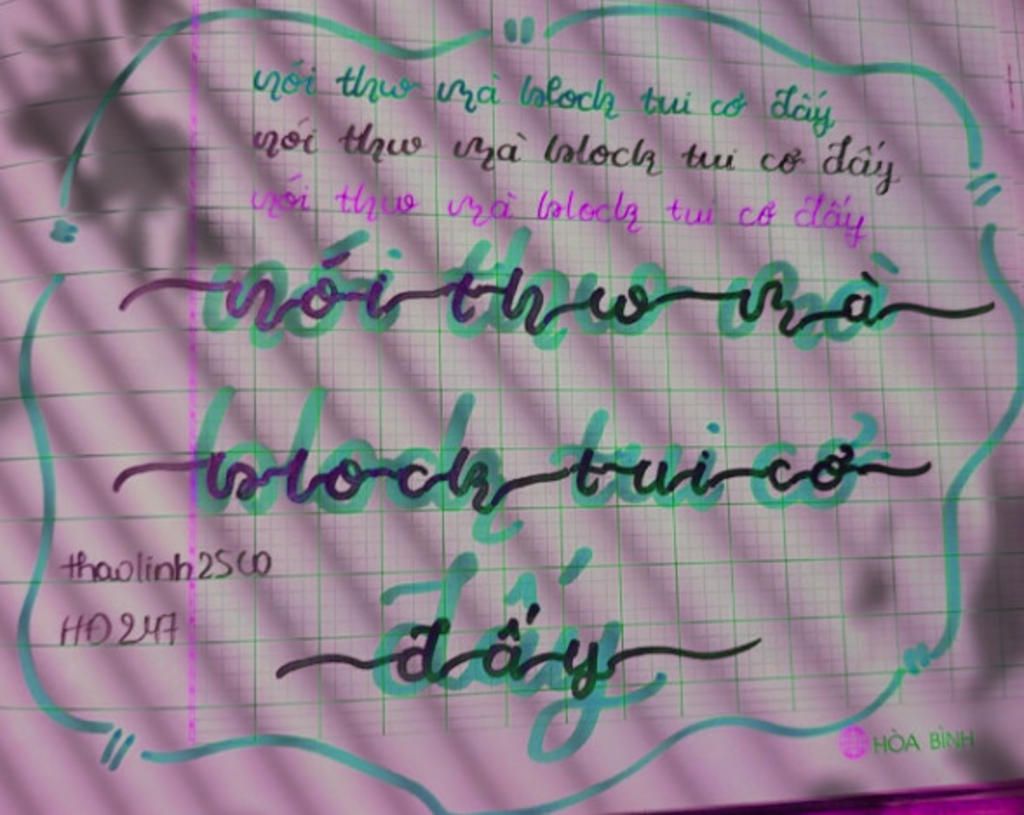 nói thw mà block tui cơ đấy
nói thw mà block tui cơ đấy
nói thw mà block tui cơ đấy
nói thw mà
block tui cơ
đấy
thaolinh25CD
HĐ247
HÒA BÌNH